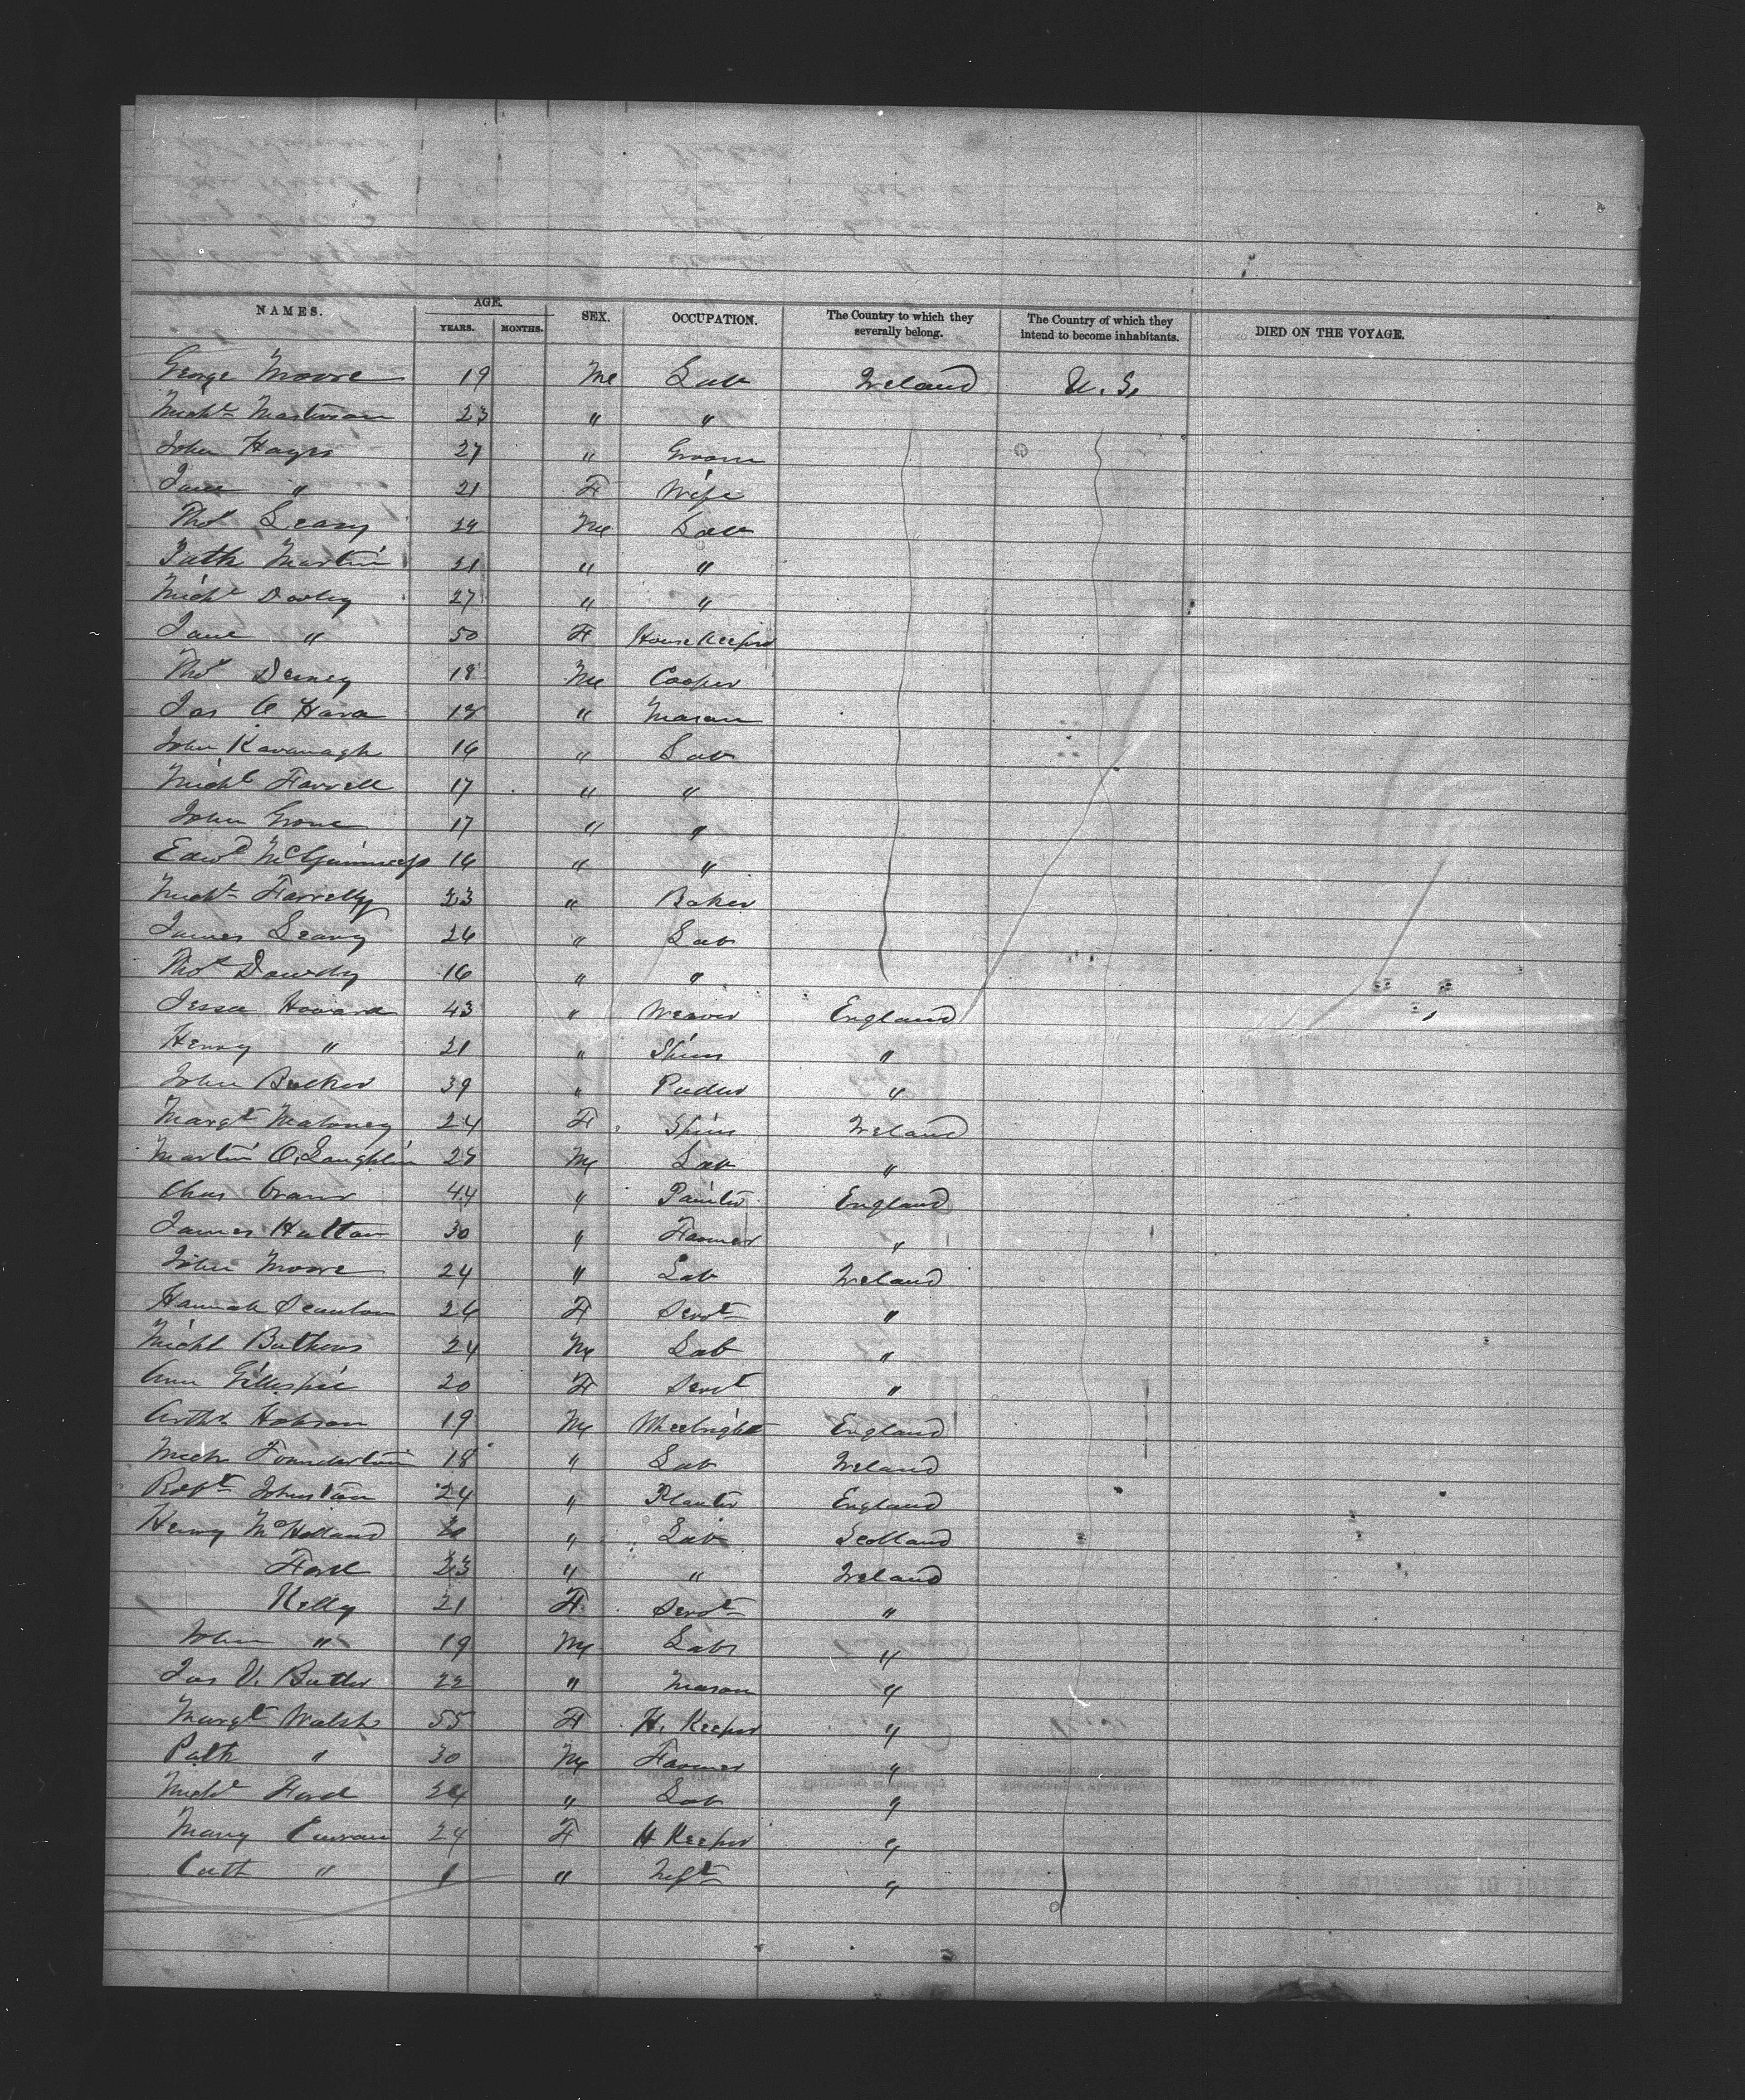 NAMES. AGE. YEARS. MONTHS. SEX. OCCUPATION. The Country to which they severally belong. The Country of which they intend to become inhabitants. DIED ON THE VOYAGE.
George Moore 19 Me Lab Ireland U.S.
Michl 23 " "
John Hayes 27 " Groom
Jane " 21 F Wife
Thos Leary 24 Me Lab
Patk Martin 21 " "
Michl Dooley 27 " "
Jane " 50 F House Keeper
Thos 18 Me Cooper
Jas O Hara 18 " Mason
John Kavanagh 16 " Lab
Michl Farrell 17 " "
John 17 " "
Edwd McGuinness 16 " "
Michl Farrelly 23 " Baker
James Leary 26 " Lab
Thos Dowdy 16 " "
Jessa Howard 43 " Weaver England
Henry " 21 " Spin "
John 39 " "
Margt Maloney 24 F Spin Ireland
Martin O.Laughlin 25 M Lab "
Chas 44 " Painter England
James 30 " Farmer "
John Moore 24 " Lab Ireland
Hannah Scanlon 26 F Servt "
Michl 24 M Lab "
Ann Gillespie 20 F Servt "
Arthr Hobson 19 M England
Mich 18 " Lab Ireland
Robt Johnston 24 " England
Henry McHolland " Lab Scotland
Ford 23 " " Ireland
Kelly 21 F Servt "
John " 19 M Lab "
Jas Butler 22 " Mason "
Margt Walsh 55 F H. Keeper "
Patk " 30 M Farmer "
Michl Ford 24 " Lab "
Mary Curran 24 F H Keeper "
Cath " 1 " Inft "